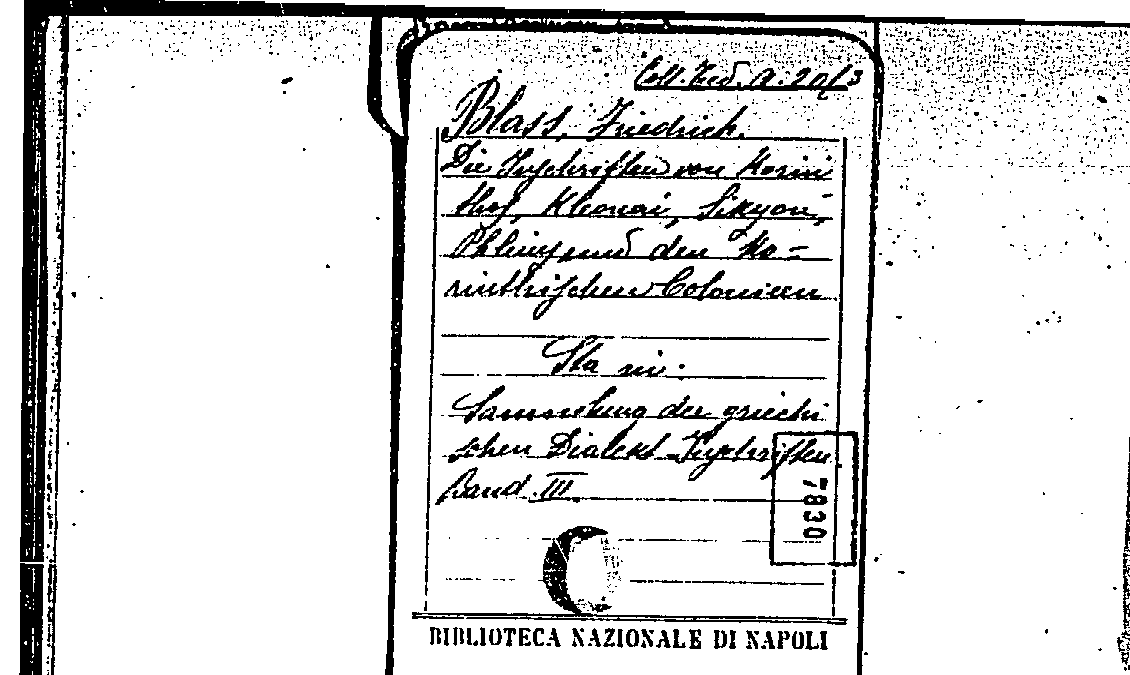 Coll. Ted. A. 20/3
Blass, Friedrich.
Die Inschriften von Korin
thos, Kleonai, Sikyon,
Phlius und den Ko=
rinthischen Colonieen
Sta in:
Sammlung der griechi
schen Dialekt-Inschriften
Band III.
7830
BIBLIOTECA NAZIONALE DI NAPOLI